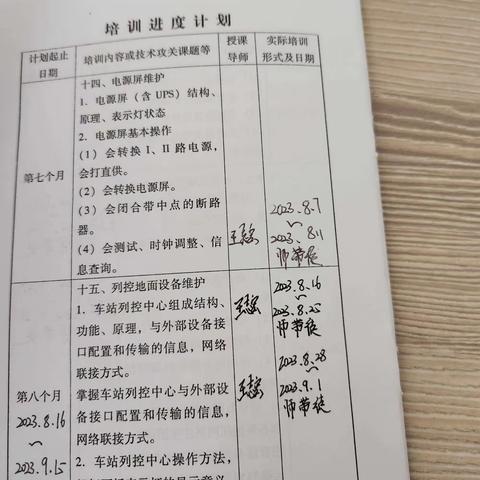 培训进度计划
计划起止
日期
培训内容或技术攻关课题等
授课
导师
实际培训
形式及日期
第七个月
十四、电源屏维护
1．电源屏（含 UPS）结构、
原理、表示灯状态
2．电源屏基本操作
（1）会转换 I、II 路电源，
会打直供。
（2）会转换电源屏。
（3）会闭合带中点的断路
器。
（4）会测试、时钟调整、信
息查询。
2023.8.7
~
2023.8.11
师带徒
第八个月
2023.8.16
~
2023.9.15
十五、列控地面设备维护
1．车站列控中心组成结构、
功能、原理，与外部设备接
口配置和传输的信息，网络
联接方式。
掌握车站列控中心与外部设
备接口配置和传输的信息，
网络联接方式。
2．车站列控中心操作方法，
2023.8.16
~
2023.8.25
师带徒
2023.8.28
~
2023.9.1
师带徒